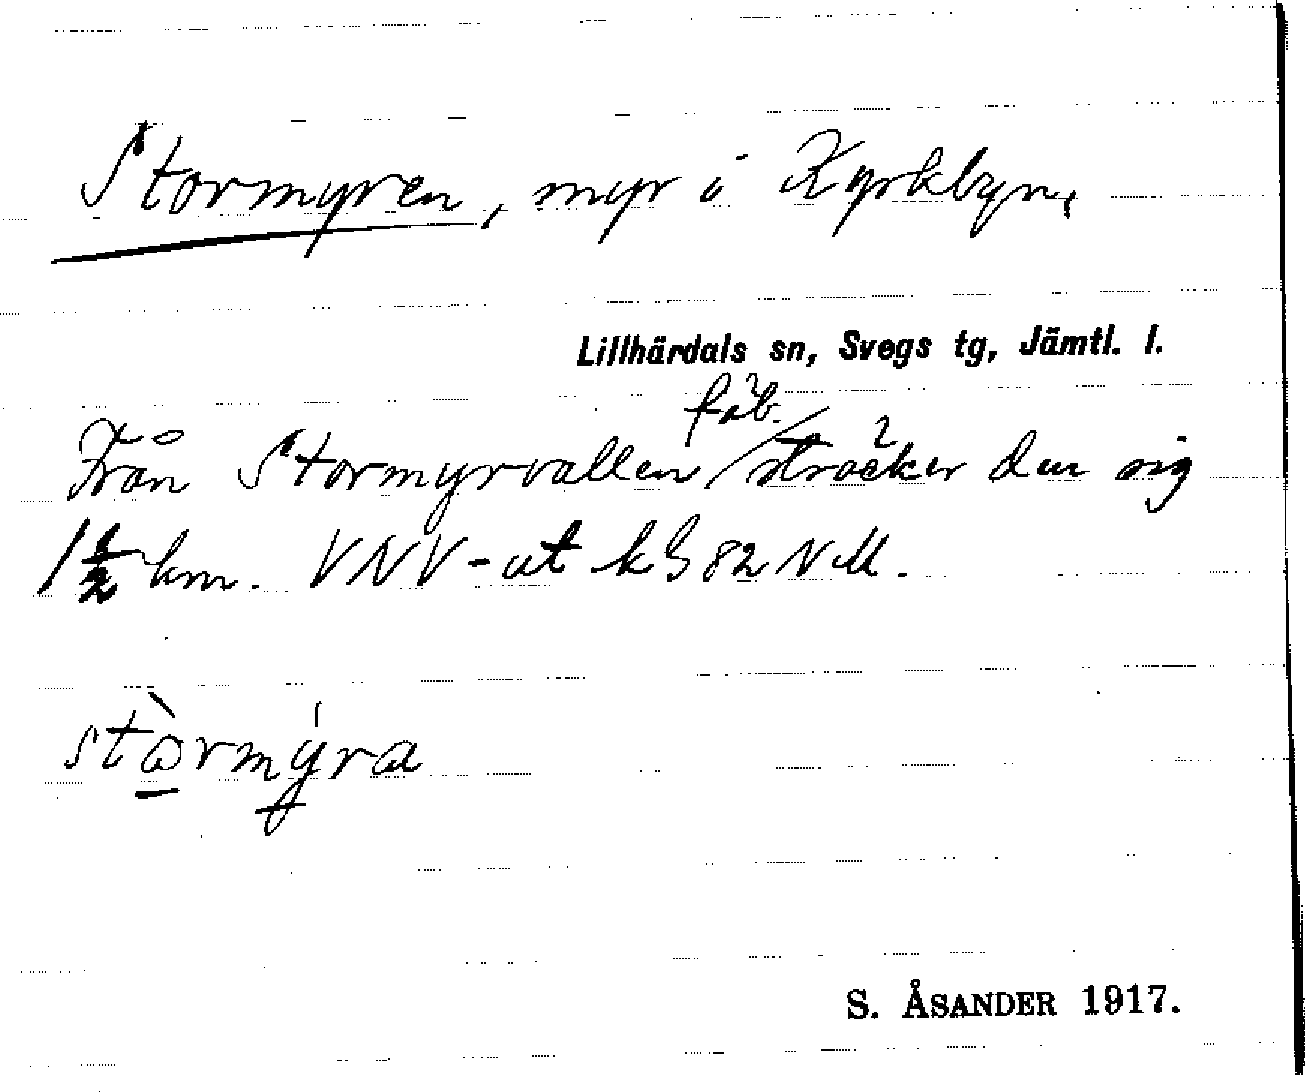 Stormyren, myr i Kyrkbyn,
Lillhärdals sn, Svegs tg, Jämtl. l.
fäb.
Från Stormyrvallen sträcker den sig
1½ km. VNV-ut k G 82 NM.
stòrmýra
S. ÅSANDER 1917.